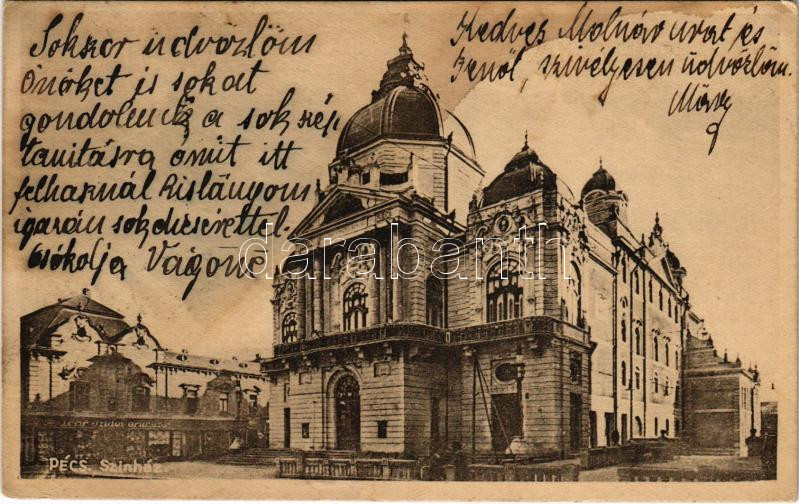 Sokszor üdvözlöm
Önöket is sokat
gondolunk a sok szép
tanitásra amit itt
felhasznál kislányom
igazán sok dicsérettel.
csókolja Vágóné
Kedves Molnár urat és
Jenőt, szivélyesen üdvözlöm.
darabanth
PÉCS, Szinház.